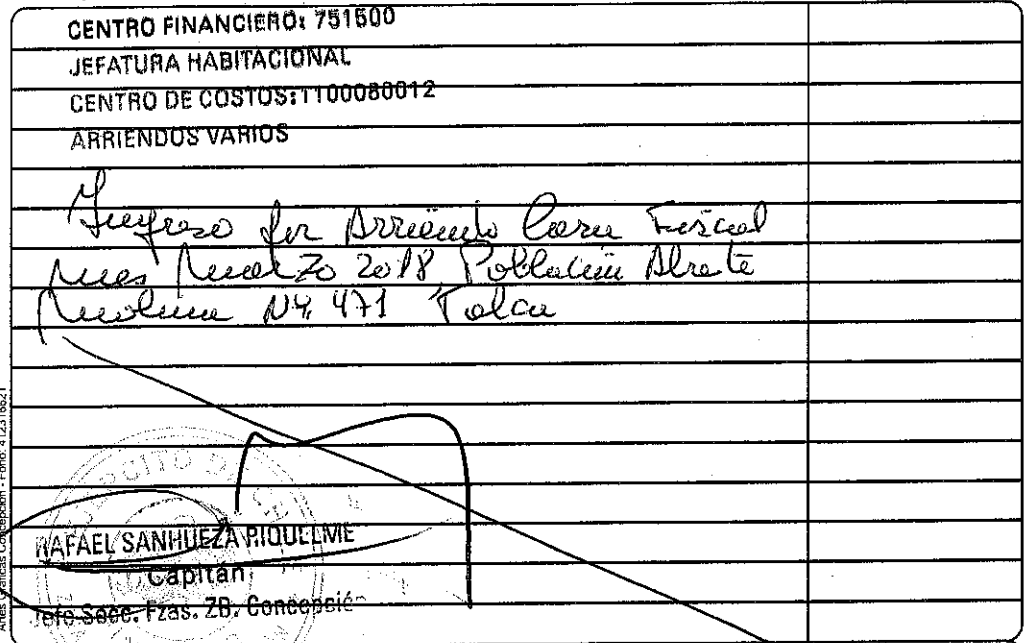 CENTRO FINANCIERO: 751600
JEFATURA HABITACIONAL
CENTRO DE COSTOS:1100080012
ARRIENDOS VARIOS
Ingreso por Arriendo Casa Fiscal
mes Marzo 2018 Población Abate
Molina Nº 471 Talca
RAFAEL SANHUEZA RIQUELME
Capitán
Jefe Secc. Fzas. ZB. Concepción
Artes Gráficas Concepción - Fono: 412316621